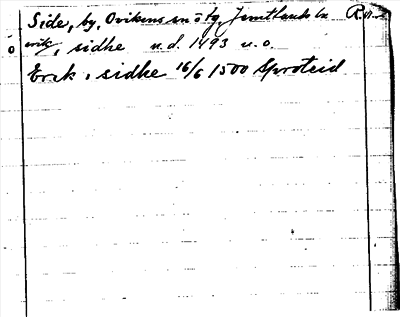 Side, by, Ovikens sn o tg, Jemtlands ln R.
o erik, sidhe u.d. 1493 u.o.
Erik i sidhe 16/6 1500 Sproteid